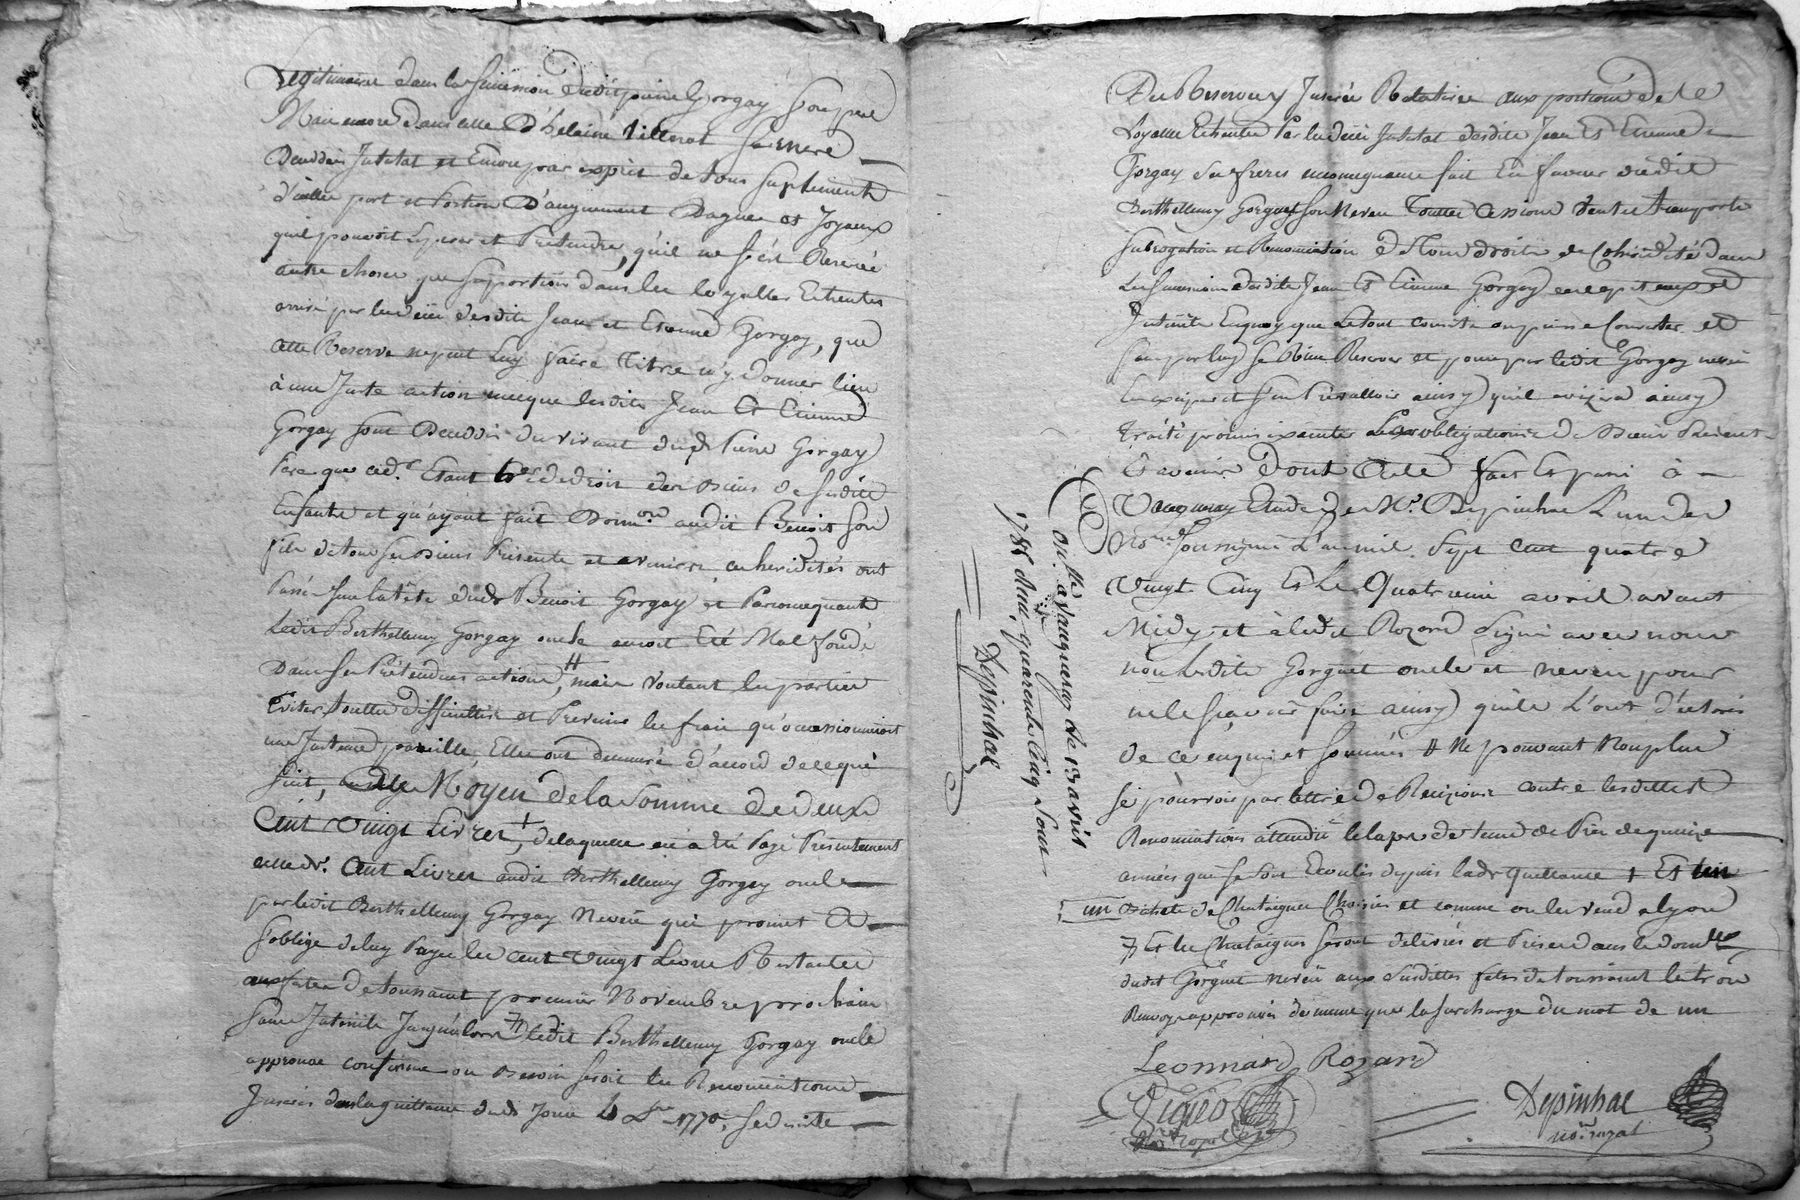 Legitimaire dans la Sucession dudit pierre Gorgay Son pere
Mais encore dans celle d'helaine Villenot Sa mere
Deceddés Intestat et Encore par exprès de tous Suplement
d'icelle part et Portion D'augmement Bagues et Joyaux
quil pouvoit Esperer et Pretendre, qu'il ne s'est Reservé
autre chose que Sa portion dans les loyalles Echeutes
arrivé par le decès desdits Jean et Etienne Gorgay, que
cette Reserve ne peut luy faire Titre n'y donner lieu
à une Juste action lesdits Jean Et Etienne
Gorgay sont Deceddés du vivant dudt Pierre Gorgay
Pere que ced. Etant de droit des Biens de Sesdits
Enfants et qu'ayant fait audit Benoit Son
fils de tous Ses Biens Presents et avenirs ces heridités ont
Passé Sur la tête dudt Benoit Gorgay et Parconsequant
Ledit Berthellemy Gorgay oncle auroit Eté Mal fondé
Dans Ses Prétendues actions, # mais voulant les parties
Eviter touttes difficultés et Prevenir les frais qu'occasionneroit
une Instance pareille, Elles ont demeuré d'accord de ce qui
suit, Moyen de la Somme de deux
Cent Vingt Livres +, de laquelle en a Eté Payé Presentement
celle de Cent Livres audit Berthellemy Gorgay oncle
par ledit Berthellemy Gorgay Neveu qui promet Et
s'oblige de luy Payer les cent vingt Livres Restantes
aux fetes de toussaint premier Novembre prochain
Sans Interets Jusqu'alors 7 Ledit Berthellemy Gorgay oncle
approuve confirme ou Besoin seroit les Renonciations
Inserées dans la quittance dudt Jour 1770, Sedésiste
Des Reserves Inserée Relative aux portions de
Loyalle Echeutes Par le decès Intestat desdits Jean Et Etienne
Gorgay Ses freres consequance fait En faveur dudit
Berthellemy Gorguet Son Neveu Touttes Cessions Ventes transports
Subrogation et Renonciation de tous droits de Coheridité dans
Les Sucessions desdits Jean Et Etienne Gorgay
que le tout consiste ou puisse Consister et
Sans par luy se Rien Reserver et pourra par ledit Gorgay neveu
s'en Prevalloir ainsy quil avizera ainsy
traité promis executer obligations de Biens Presents
Et avenir Dont Acte fait Et passé à
Vaugneray Etude de Me. Depinhac L'un des
Nores Soussignés L'an mil Sept cent quatre
Vingt Cinq Et Le Quatrieme avril avant
Midy, et à ledit Rozard Signé avec nous
non lesdits Gorguet oncle et neveu pour
ne le sçavoir faire ainsy quils L'ont déclaré
de ce enquis et sommés # Ne pouvant Non plus
se pourvoir par lettre de Recizion contre lesdittes
Renonciations attendu le laps de tems de Plus de quinze
années que se sont Ecoulés depuis ladt quittance + Et
un Bichet de Chataignes Choisies et comme on les vend a lyon
7 Et les Chataignes Seront delivrés et Prises dans le domlle
dudit Gorguet neveu aux Susdittes fetes de toussaint le trois
Renvoy approuvés de meme que la Surcharge du mot de un
Leonnard Rozard
Depinhac
nore royal
Con.lle a Vaugneray le 13 avril
1785 quarente Cinq Sous
Depinhac